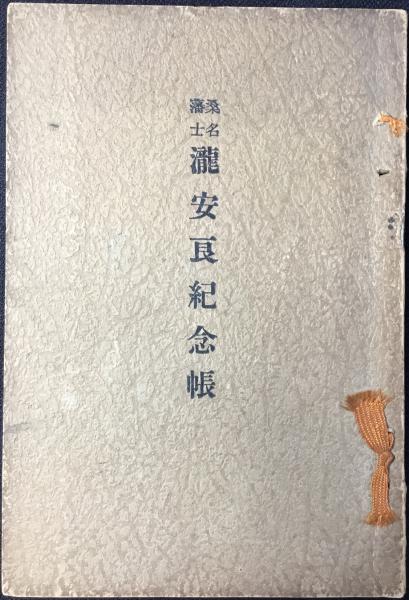 桑名
藩士
瀧安良紀念帳